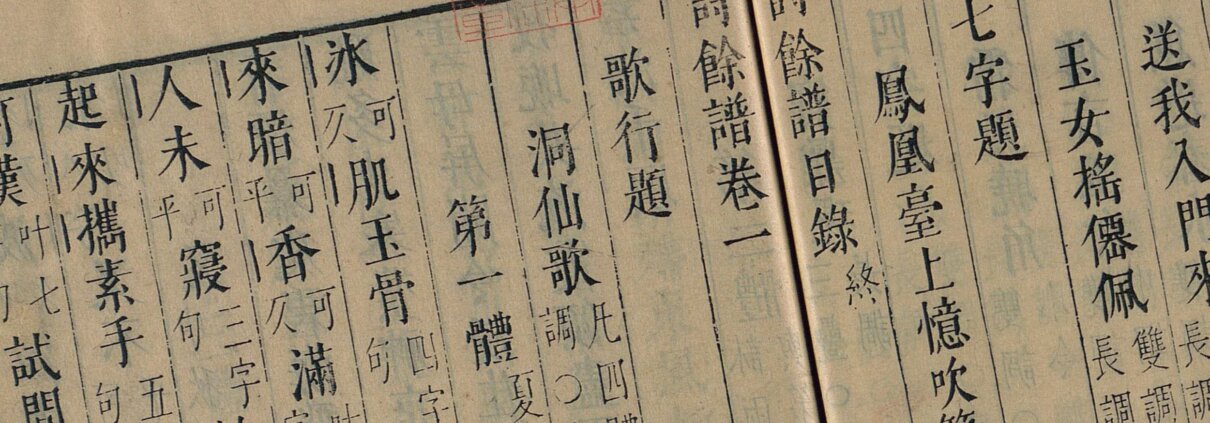 送我入門來長調
玉女搖僊佩雙調長調
七字題
鳳凰臺上憶吹
餘譜目錄終
餘譜卷一
歌行題
洞仙歌凡四體調〇
第一體夏
氷可仄肌玉骨四字句
來暗可平香可仄滿
人未可平寢三字句
起來攜素手五句
漢叶七試